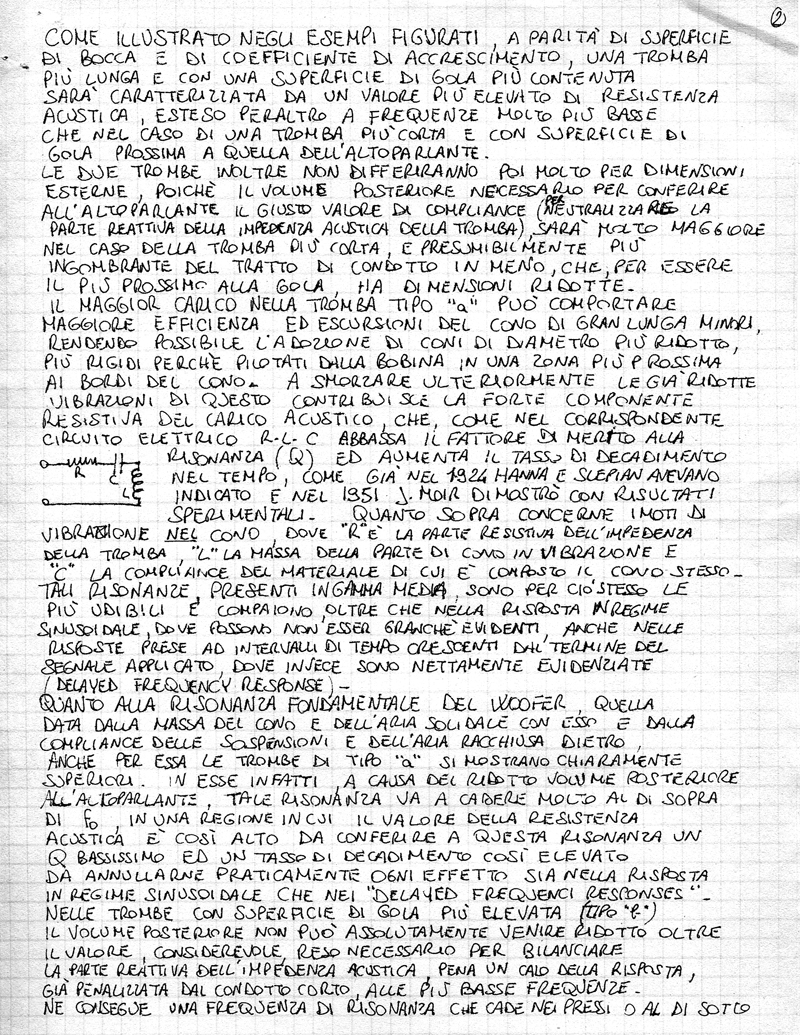 2
COME ILLUSTRATO NEGLI ESEMPI FIGURATI, A PARITÀ DI SUPERFICIE
DI BOCCA E DI COEFFICIENTE DI ACCRESCIMENTO, UNA TROMBA
PIÙ LUNGA E CON UNA SUPERFICIE DI GOLA PIÙ CONTENUTA
SARA' CARATTERIZZATA DA UN VALORE PIÙ ELEVATO DI RESISTENZA
ACUSTICA, ESTESO PERALTRO A FREQUENZE MOLTO PIÙ BASSE
CHE NEL CASO DI UNA TROMBA PIÙ CORTA E CON SUPERFICIE DI
GOLA PROSSIMA A QUELLA DELL'ALTOPARLANTE.
LE DUE TROMBE INOLTRE NON DIFFERIRANNO POI MOLTO PER DIMENSIONI
ESTERNE, POICHÈ IL VOLUME POSTERIORE NECESSARIO PER CONFERIRE
ALL'ALTOPARLANTE IL GIUSTO VALORE DI COMPLIANCE (PER NEUTRALIZZARE LA
PARTE REATTIVA DELLA IMPEDENZA ACUSTICA DELLA TROMBA), SARÀ MOLTO MAGGIORE
NEL CASO DELLA TROMBA PIÙ CORTA, E PRESUMIBILMENTE PIÙ
INGOMBRANTE DEL TRATTO DI CONDOTTO IN MENO, CHE, PER ESSERE
IL PIÙ PROSSIMO ALLA GOLA, HA DIMENSIONI RIDOTTE.
IL MAGGIOR CARICO NELLA TROMBA TIPO "a" PUÒ COMPORTARE
MAGGIORE EFFICIENZA ED ESCURSIONI DEL CONO DI GRAN LUNGA MINORI,
RENDENDO POSSIBILE L'ADOZIONE DI CONI DI DIAMETRO PIÙ RIDOTTO,
PIÙ RIGIDI PERCHÈ PILOTATI DALLA BOBINA IN UNA ZONA PIÙ PROSSIMA
AI BORDI DEL CONO. A SMORZARE ULTERIORMENTE LE GIÀ RIDOTTE
VIBRAZIONI DI QUESTO CONTRIBUISCE LA FORTE COMPONENTE
RESISTIVA DEL CARICO ACUSTICO, CHE, COME NEL CORRISPONDENTE
CIRCUITO ELETTRICO R-L-C ABBASSA IL FATTORE DI MERITO ALLA
RISONANZA (Q) ED AUMENTA IL TASSO DI DECADIMENTO
R C L
NEL TEMPO, COME GIÀ NEL 1924 HANNA E SLEPIAN AVEVANO
INDICATO E NEL 1951 J. MOIR DIMOSTRÒ CON RISULTATI
SPERIMENTALI. QUANTO SOPRA CONCERNE I MOTI DI
VIBRAZIONE NEL CONO, DOVE "R" È LA PARTE RESISTIVA DELL'IMPEDENZA
DELLA TROMBA, "L" LA MASSA DELLA PARTE DI CONO IN VIBRAZIONE E
"C" LA COMPLIANCE DEL MATERIALE DI CUI E' COMPOSTO IL CONO STESSO.
TALI RISONANZE, PRESENTI IN GAMMA MEDIA, SONO PER CIÒ STESSO LE
PIÙ UDIBILI E COMPAIONO, OLTRE CHE NELLA RISPOSTA IN REGIME
SINUSOIDALE, DOVE POSSONO NON ESSER GRANCHÈ EVIDENTI, ANCHE NELLE
RISPOSTE PRESE AD INTERVALLI DI TEMPO CRESCENTI DAL TERMINE DEL
SEGNALE APPLICATO, DOVE INVECE SONO NETTAMENTE EVIDENZIATE
(DELAYED FREQUENCY RESPONSE)-
QUANTO ALLA RISONANZA FONDAMENTALE DEL WOOFER, QUELLA
DATA DALLA MASSA DEL CONO E DELL'ARIA SOLIDALE CON ESSO E DALLA
COMPLIANCE DELLE SOSPENSIONI E DELL'ARIA RACCHIUSA DIETRO,
ANCHE PER ESSA LE TROMBE DI TIPO "a" SI MOSTRANO CHIARAMENTE
SUPERIORI. IN ESSE INFATTI, A CAUSA DEL RIDOTTO VOLUME POSTERIORE
ALL'ALTOPARLANTE, TALE RISONANZA VA A CADERE MOLTO AL DI SOPRA
DI fo, IN UNA REGIONE IN CUI IL VALORE DELLA RESISTENZA
ACUSTICA E' COSÌ ALTO DA CONFERIRE A QUESTA RISONANZA UN
Q BASSISSIMO ED UN TASSO DI DECADIMENTO COSÌ ELEVATO
DA ANNULLARNE PRATICAMENTE OGNI EFFETTO SIA NELLA RISPOSTA
IN REGIME SINUSOIDALE CHE NEI "DELAYED FREQUENCI RESPONSES"-
NELLE TROMBE CON SUPERFICIE DI GOLA PIÙ ELEVATA (TIPO "b")
IL VOLUME POSTERIORE NON PUÒ ASSOLUTAMENTE VENIRE RIDOTTO OLTRE
IL VALORE, CONSIDEREVOLE, RESO NECESSARIO PER BILANCIARE
LA PARTE REATTIVA DELL'IMPEDENZA ACUSTICA, PENA UN CALO DELLA RISPOSTA,
GIÀ PENALIZZATA DAL CONDOTTO CORTO, ALLE PIÙ BASSE FREQUENZE-
NE CONSEGUE UNA FREQUENZA DI RISONANZA CHE CADE NEI PRESSI O AL DI SOTTO